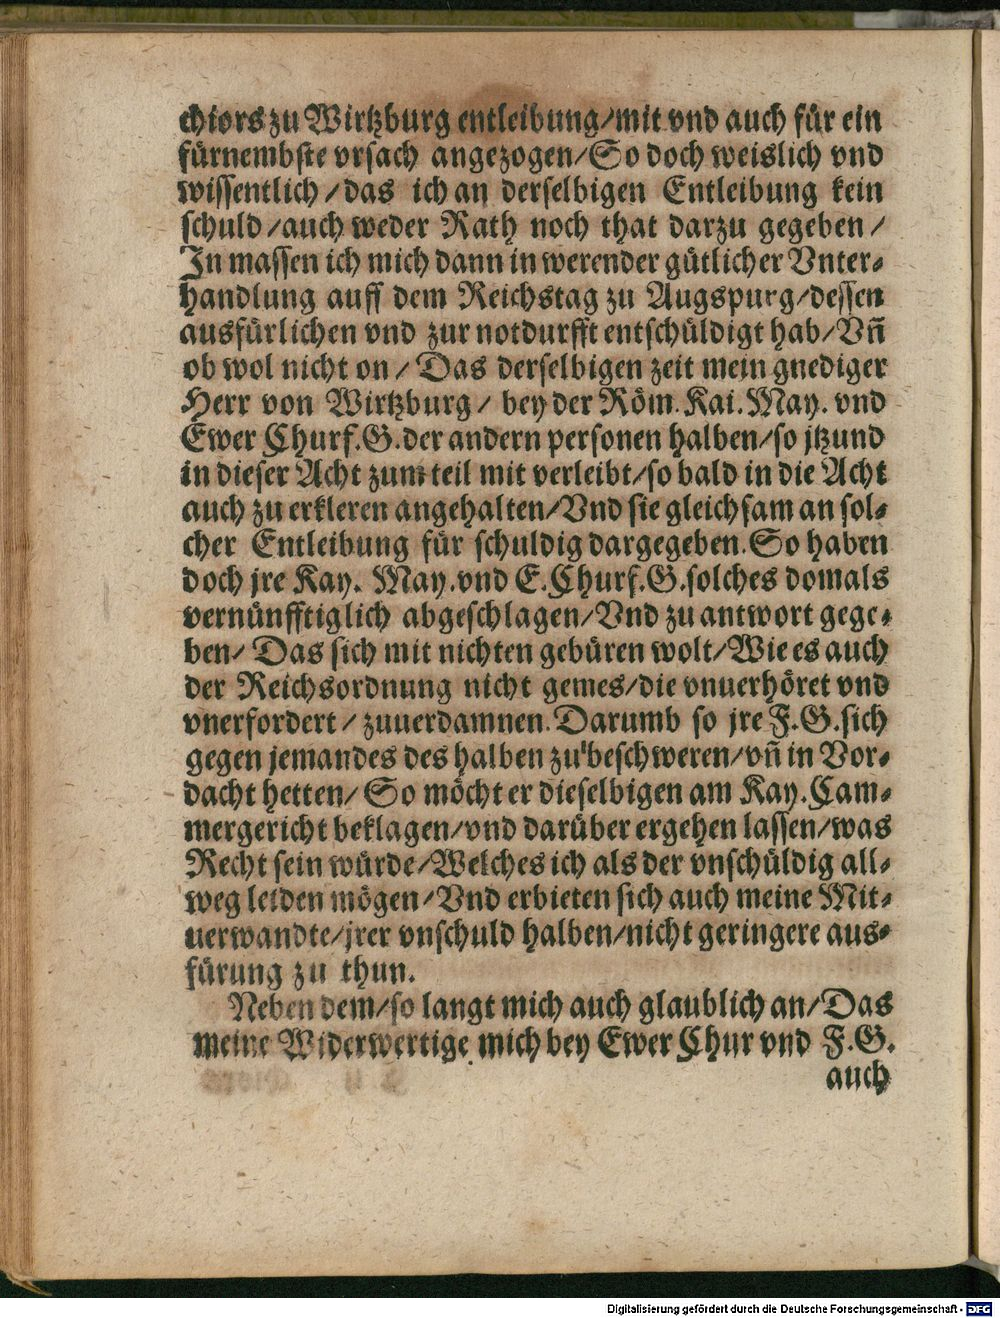 chiors zu Wirtzburg entleibung/mit vnd auch für ein
fürnembste vrsach angezogen/So doch weislich vnd
wissentlich/das ich an derselbigen Entleibung kein
schuld/auch weder Rath noch that darzu gegeben/
In massen ich mich dann in werender gütlicher Vnter-
handlung auff dem Reichstag zu Augspurg/dessen
ausfürlichen vnd zur notdurfft entschüldigt hab/Vñ
ob wol nicht on/Das derselbigen zeit mein gnediger
Herr von Wirtzburg/bey der Röm. Kai. May. vnd
Ewer Churf.G.der andern personen halben/so jtzund
in dieser Acht zum teil mit verleibt/so bald in die Acht
auch zu erkleren angehalten/Vnd sie gleichsam an sol-
cher Entleibung für schuldig dargegeben.So haben
doch jre Kay. May.vnd E.Churf.G.solches domals
vernünfftiglich abgeschlagen/Vnd zu antwort gege-
ben/Das sich mit nichten gebüren wolt/Wie es auch
der Reichsordnung nicht gemes/die vnuerhöret vnd
vnerfordert/zuuerdamnen.Darumb so jre F.G.sich
gegen jemandes des halben zu beschweren/vñ in Vor-
dacht hetten/So möcht er dieselbigen am Kay.Cam-
mergericht beklagen/vnd darüber ergehen lassen/was
Recht sein würde/Welches ich als der vnschüldig all-
weg leiden mögen/Vnd erbieten sich auch meine Mit-
uerwandte/jrer vnschuld halben/nicht geringere aus-
fürung zu thun.
Neben dem/so langt mich auch glaublich an/Das
meine Widerwertige mich bey Ewer Chur vnd F.G.
auch
Digitalisierung gefördert durch die Deutsche Forschungsgemeinschaft - DFG